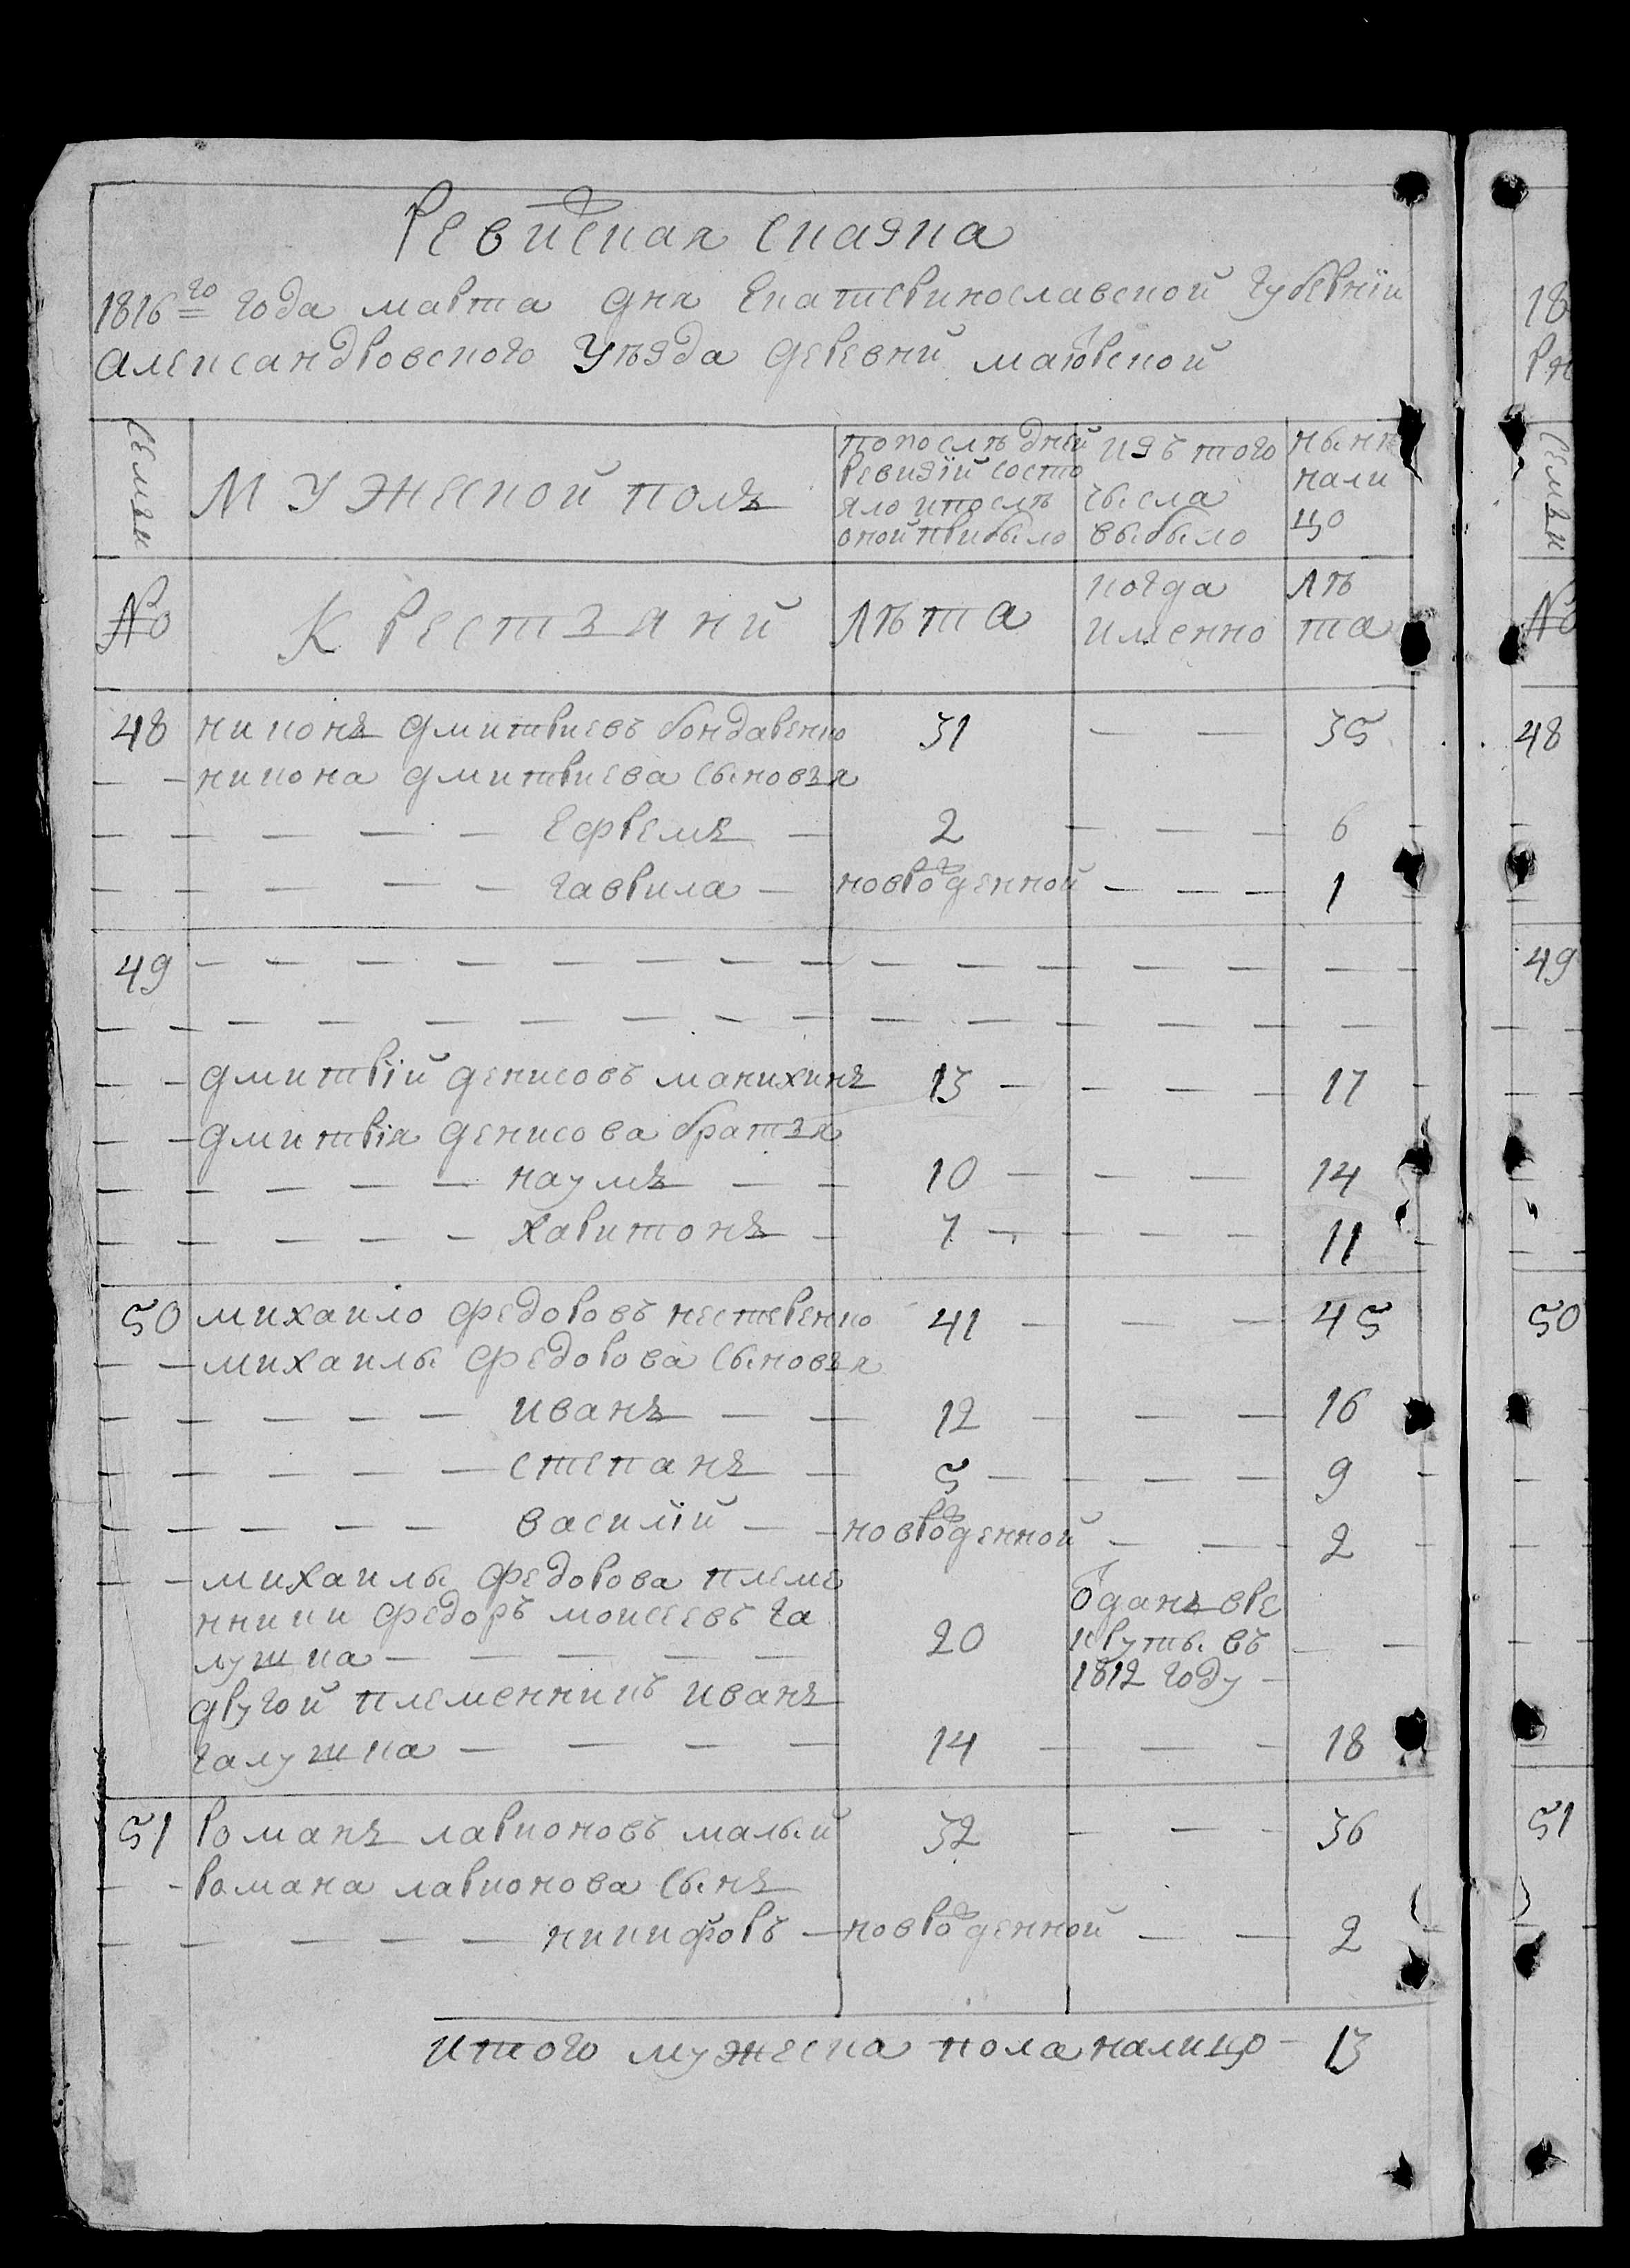 Ревиская сказка
1816го года марта дня Екатеринославской губернїи
александровского уѣзда деревни маѿрской
семьи
мужеской полъ
попослѣдней
ревизїи состо
яло ипослѣ
оной прибыло
изъ того
чысла
выбыло
нынѣ
нали
цо
№
Крестьяний
лѣта
когда
именно
лѣ
та
48 никонъ дмитриевъ бондаренко 31 — — 35
— — никона дмитриева сыновья
— — — — — Ефремъ — 2 — — — 6
— — — — — гаврила — новрожденной — — — 1
49 — — — — — — — — — — — — — —
— — — — — — — — — — — — — — —
— — дмитрїй денисовъ манихинъ 13 — — — — 17
— — дмитрїя денисова братья
— — — — — наумъ — — 10 — — — 14
— — — — — харитонъ — 7 — — — — 11
50 михаило федоровъ нестеренко 41 — — — 45
— — михаилы федорова сыновья
— — — — — иванъ — — 12 — — — 16
— — — — — степанъ — 5 — — — — 9
— — — — — василїй — — новрожденной — — 2
— — михаилы федорова племе
нники федоръ моисеевъ га
лушка — — — — — 20
ѿданъ вре
круты въ — —
1812 году —
другой племенникъ иванъ
галушка — — — — 14 — — — 18
51 романъ ларионовъ малый 32 — — — 36
— — романа ларионова сынъ
— — — — — никифоръ — новрожденной — — 2
итого мужеска пола налицо — 13
18
ре
семьи
№
48
49
50
51